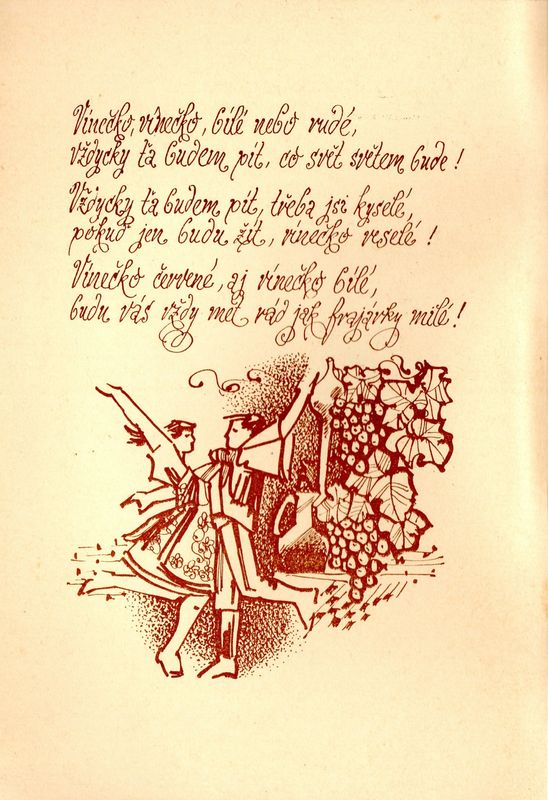 Vínečko, vínečko, bílé nebo rudé,
vždycky ťa budem pít, co svět světem bude!
Vždycky ťa budem pít, třeba jsi kyselé,
pokuď jen budu žít, vínečko veselé!
Vínečko červené, aj vínečko bílé,
budu vás vždy mět rád jak frajárky milé!